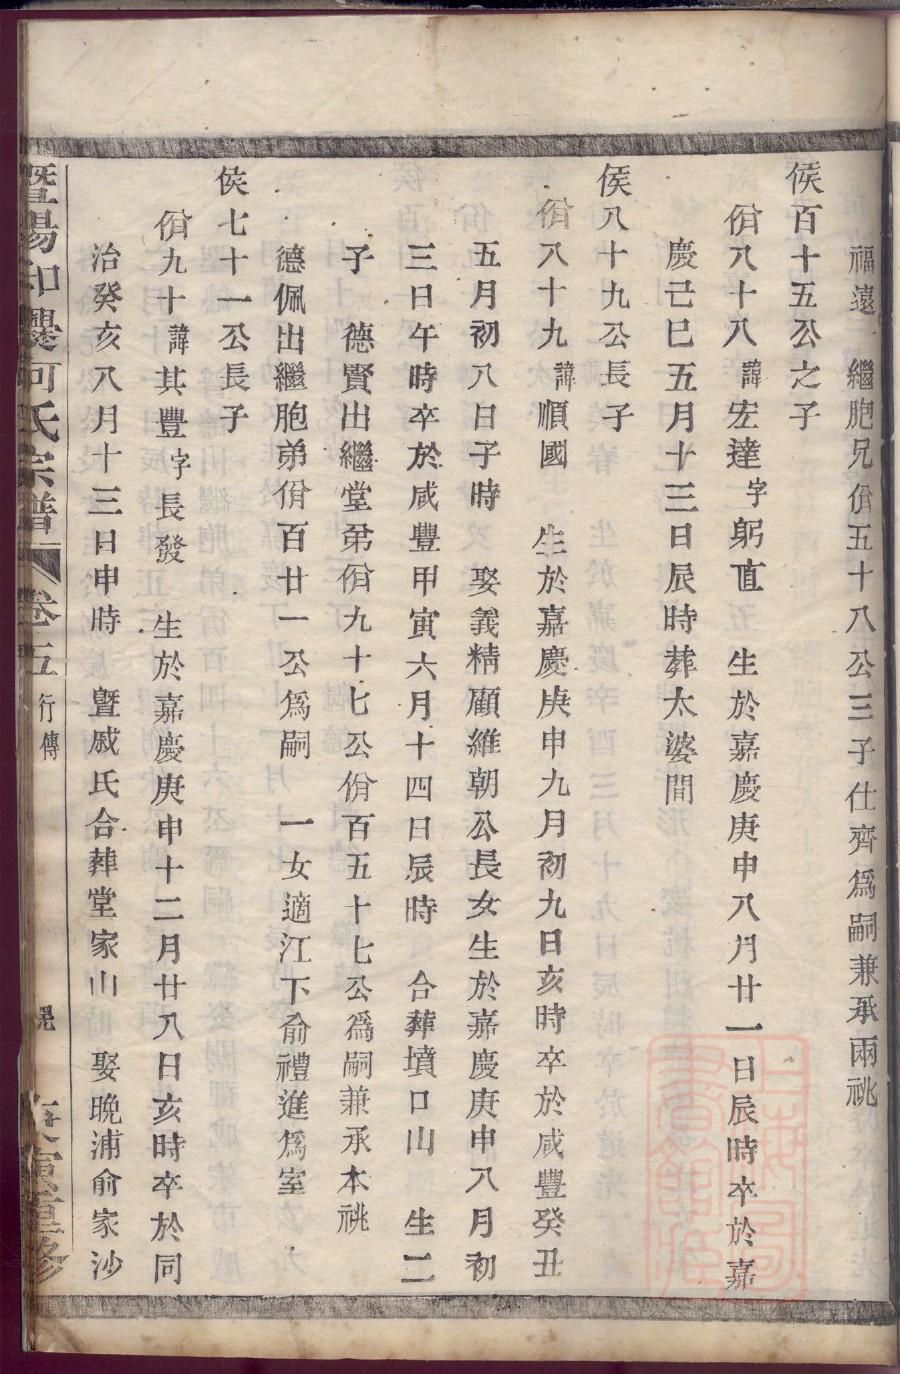 福遠 繼胞兄佾五十八公三子仕齊爲嗣兼承兩祧
侯百十五公之子
佾八十八諱宏達字躬直 生於嘉慶庚申八月廿一日辰時卒於嘉
慶己巳五月十三日辰時葬太婆間
侯八十九公長子
佾八十九諱順國 生於嘉慶庚申九月初九日亥時卒於咸豐癸丑
五月初八日子時 娶義精顧維朝公長女生於嘉慶庚申八月初
三日午時卒於咸豐甲寅六月十四日辰時 合葬墳口山 生二
子 德賢出繼堂弟佾九十七公佾百五十七公爲嗣兼承本祧
德佩出繼胞弟佾百廿一公爲嗣 一女適江下俞禮進爲室
侯七十一公長子
佾九十諱其豐字長發 生於嘉慶庚申十二月廿八日亥時卒於同
治癸亥八月十三日申時 曁戚氏合葬堂家山 娶晚浦俞家沙
暨陽 何氏宗譜 卷五 行傳 寅重修